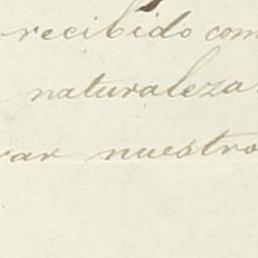 recibido com
naturaleza.
rar nuestro